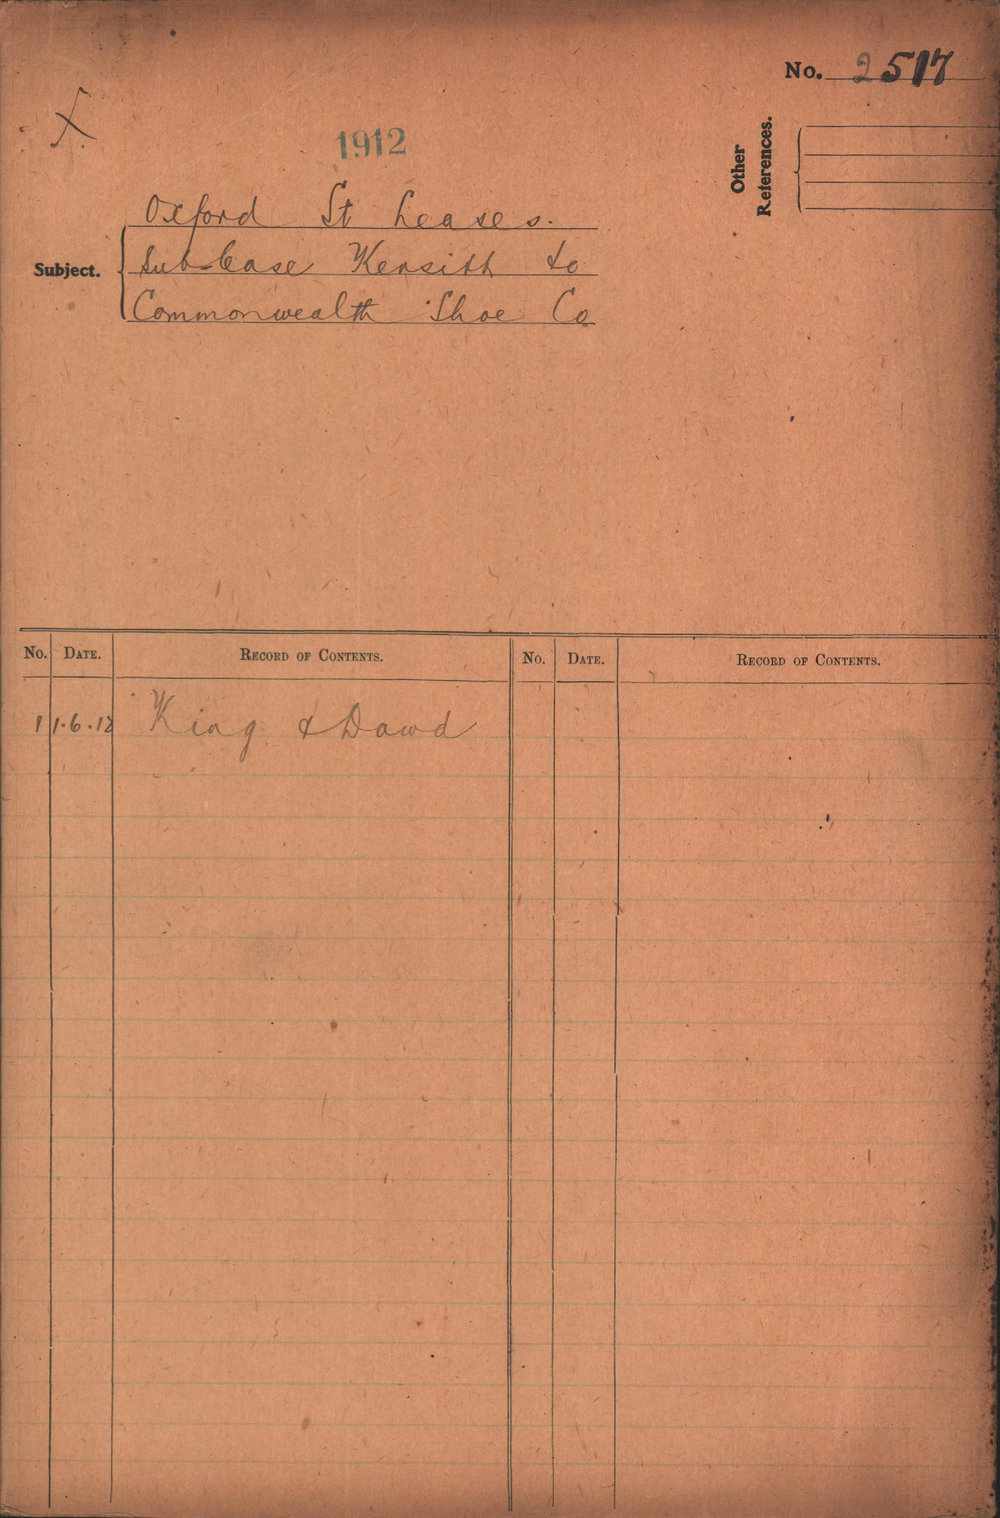 No. 2517
1912
Other
References.
Oxford St Leases.
Subject.
Sub-Lease Kensith to
Commonwealth Shoe Co
No. DATE. RECORD OF CONTENTS. No. DATE. RECORD OF CONTENTS.
1 1.6.12 King & Dowd